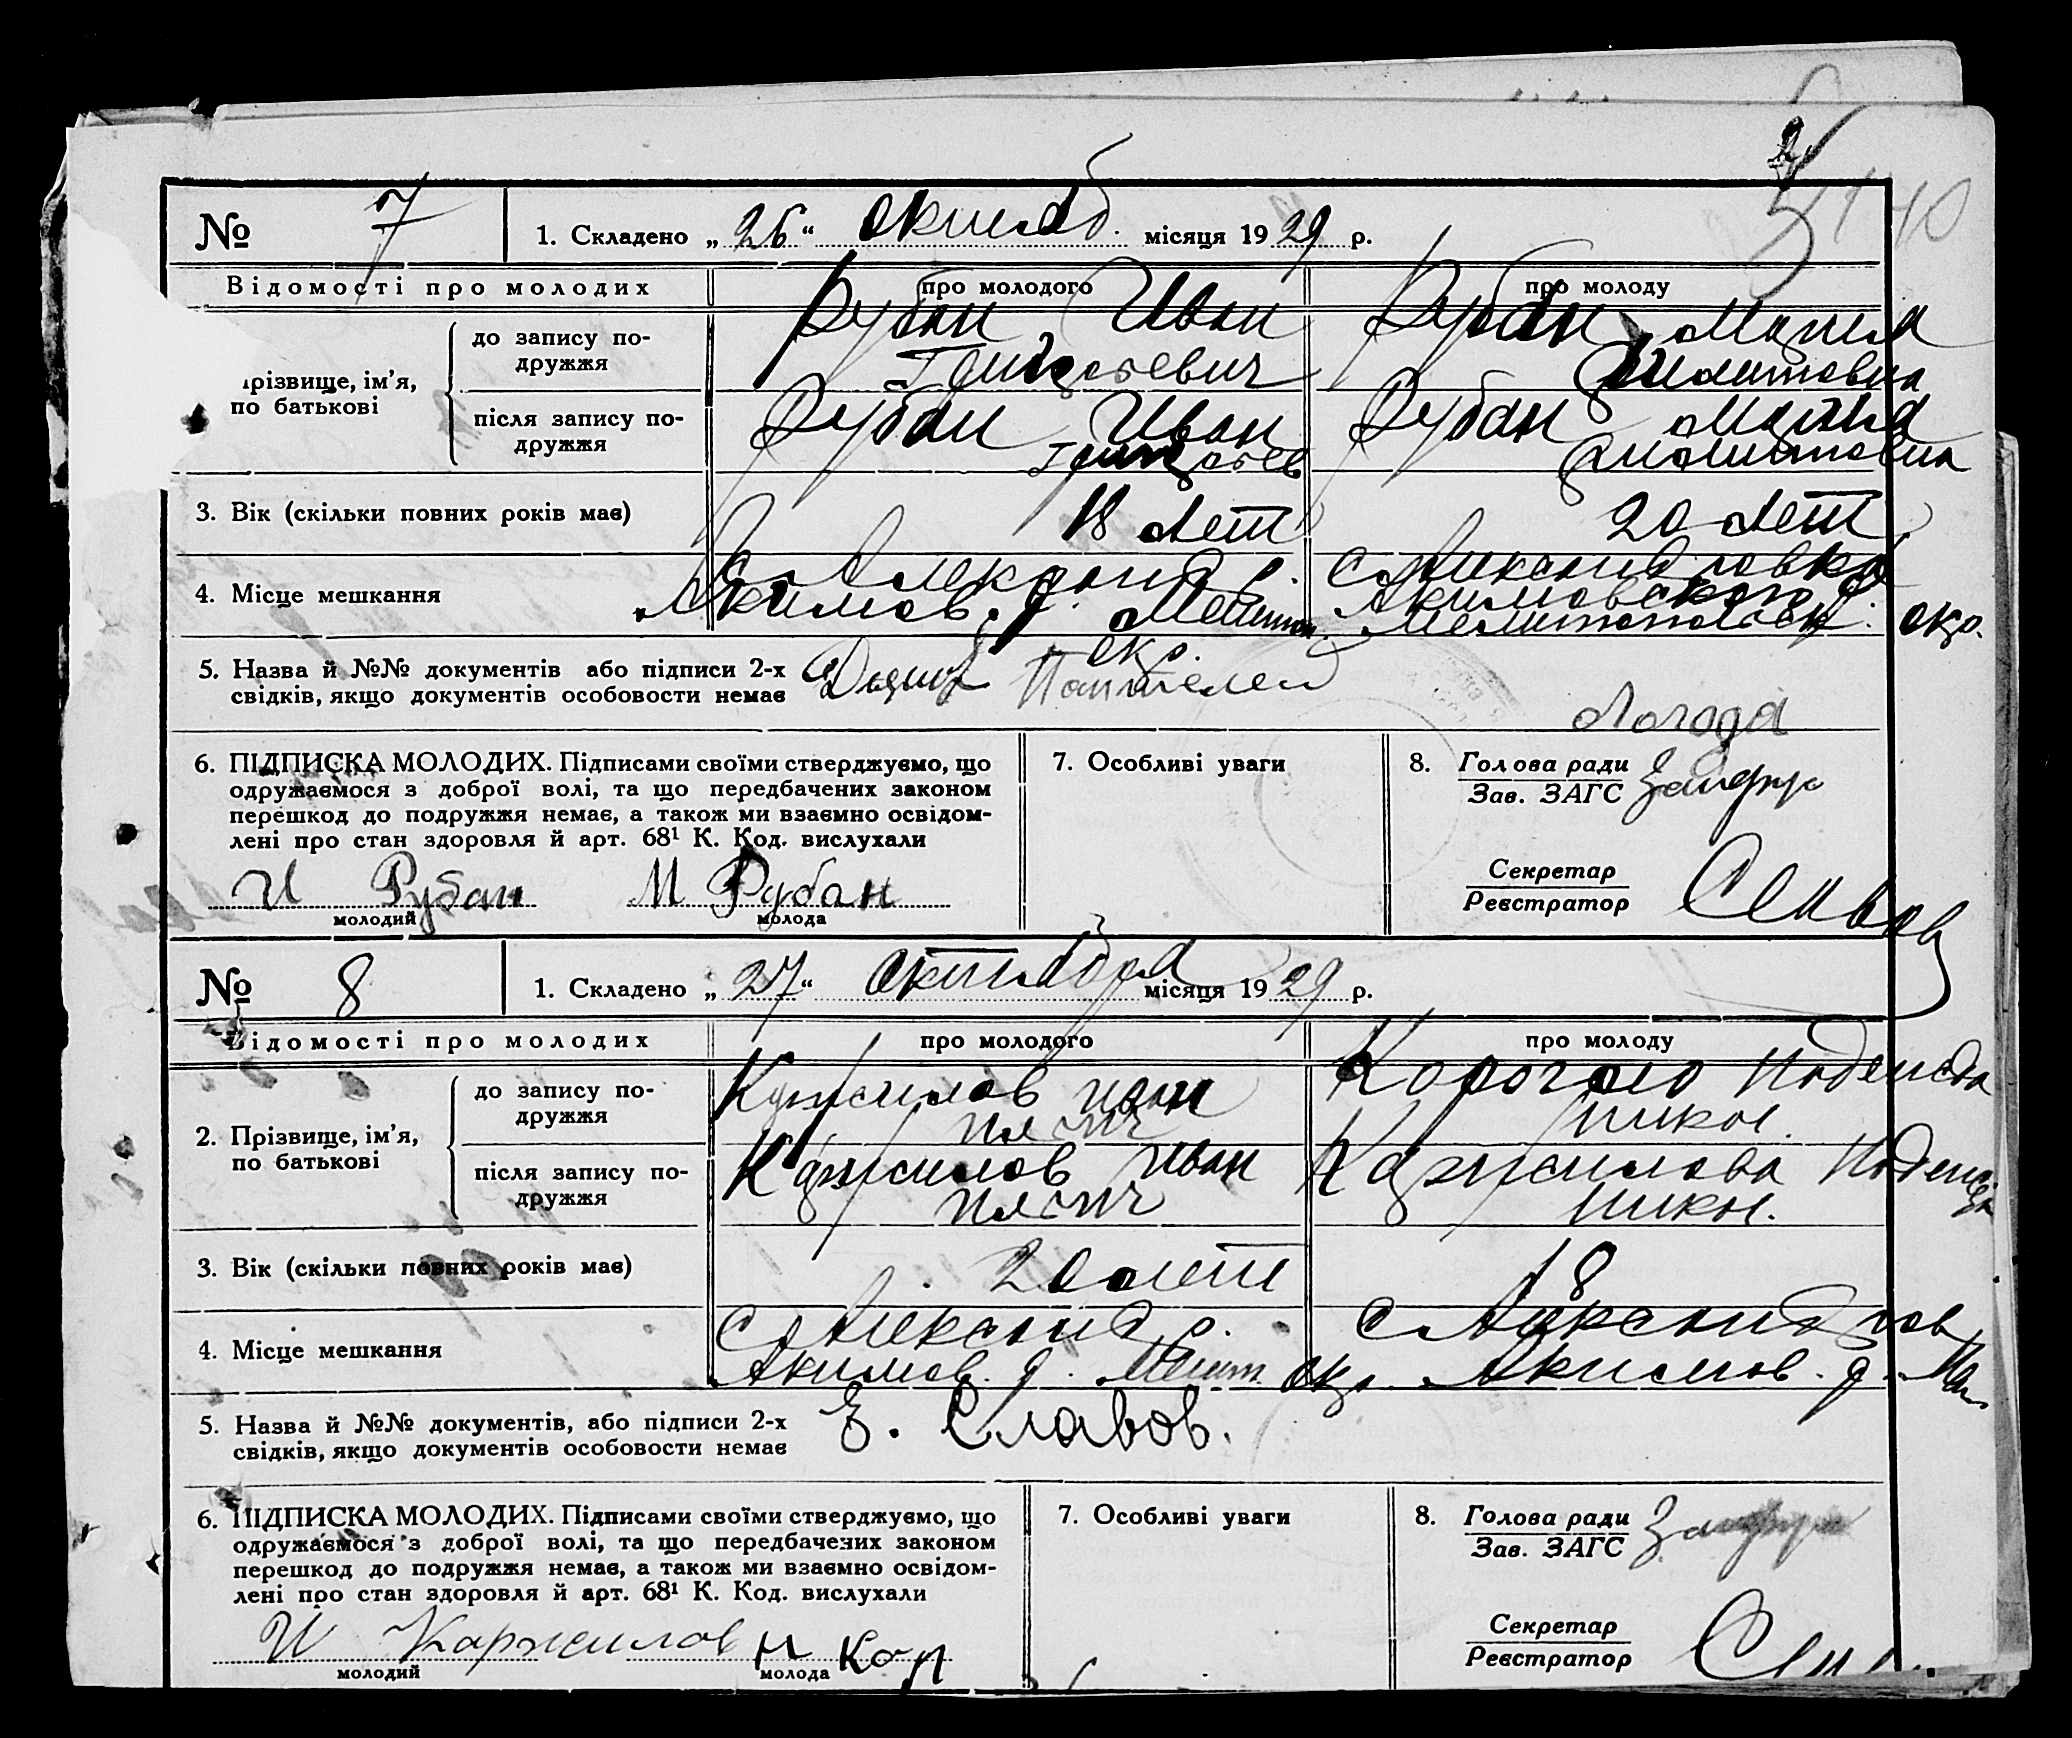 № 7 1. Складено „26“ октяб. місяця 1929 р.
Відомості про молодих про молодого про молоду
до запису по-
дружжя
Рубан Иван Рубан Мария
Григорьевич
різвище, ім’я,
по батькові
після запису по-
дружжя
Рубан Иван Рубан Мария
Григорьев
3. Вік (скільки повних років має) 18 лет 20 лет
4. Місце мешкання
с. Александр. с. Александровка
Акимов. р. Мелитоп. Акимовского р.
окр. Мелитопольск. окр.
5. Назва й №№ документів або підписи 2-х
свідків, якщо документів особовости немає
Пантелей
Логода
6. ПІДПИСКА МОЛОДИХ. Підписами своїми стверджуємо, що
одружаємося з доброї волі, та що передбачених законом
перешкод до подружжя немає, а також ми взаємно освідом-
лені про стан здоровля й арт. 68¹ К. Код. вислухали
И Рубан М Рубан
молодий молода
7. Особливі уваги
8. Голова ради
Зав. ЗАГС
Секретар
Реєстратор
№ 8 1. Складено „27“ октября місяця 1929 р.
Відомості про молодих про молодого про молоду
до запису по-
дружжя
Каржилов Иван Надежда
Никол.
2. Прізвище, ім’я,
по батькові
після запису по-
дружжя
Каржилов Иван Каржилова Надежда
Никол.
3. Вік (скільки повних років має) 20 лет 18
4. Місце мешкання
с Александр. с Александров
Акимов. р. Мелит. окр Акимов. р. Мел
5. Назва й №№ документів, або підписи 2-х
свідків, якщо документів особовости немає
Е. Славов.
6. ПІДПИСКА МОЛОДИХ. Підписами своїми стверджуємо, що
одружаємося з доброї волі, та що передбачених законом
перешкод до подружжя немає, а також ми взаємно освідом-
лені про стан здоровля й арт. 68¹ К. Код. вислухали
И Каржилов Н Кор
молодий молода
7. Особливі уваги
8. Голова ради
Зав. ЗАГС
Секретар
Реєстратор